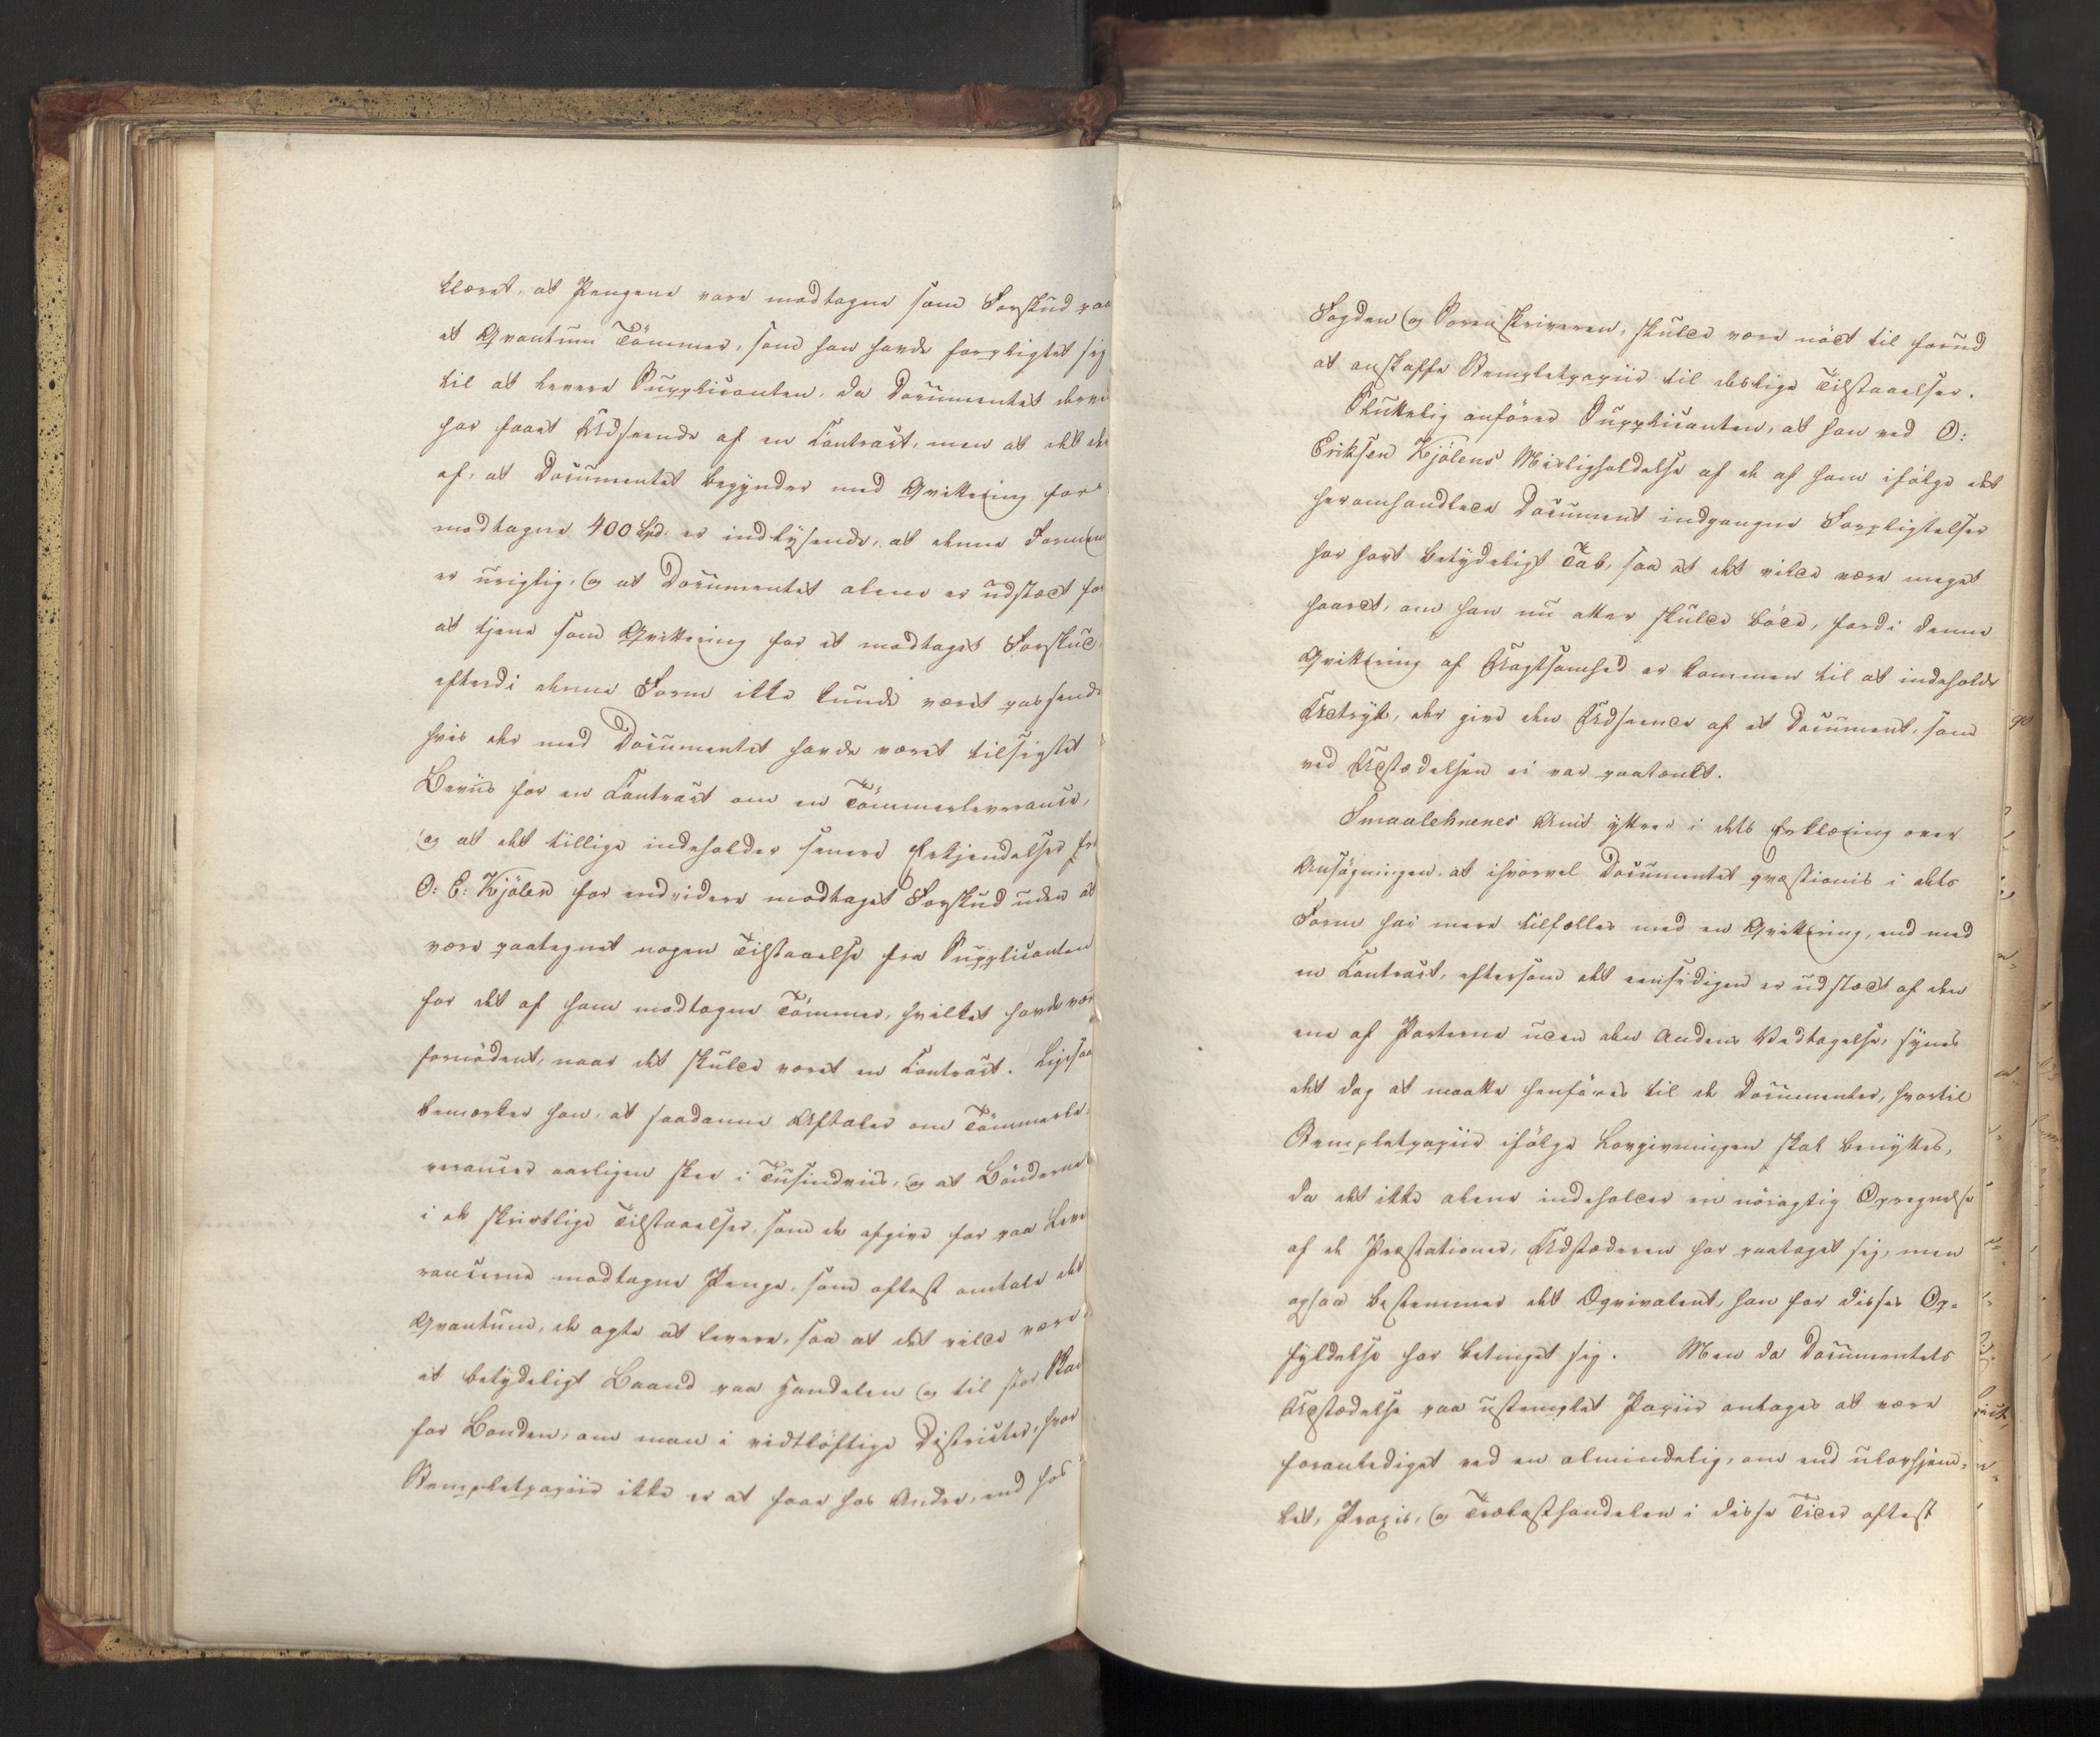 klæret, at Pengene vare modtagne som Forskud paa
et Qvantum Tömmer, som han havde forpligtet sig
til at levere Supplicanten, da Documentet derved
har faaet Udseende af en Contract, men at det der-
af, at Documentet begynder med Qvittering for
modtagne 400 Spd. er indlysende, at denne Formen
er urigtig, og at Documentet alene er udstædt for
at tjene som Qvittering for et modtaget Forskud
efterdi denne Form ikke kunde været passende
hvis der med Documentet havde været tilsigtet
Beviis for en Contract om en Tömmerleverance,
og at det tillige indeholder senere Erkjendelser fra
O: E: Kjölen for endvidere modtaget Forskud uden at
være paategnet nogen Tilstaaelse fra Supplicanten
for det af ham modtagne Tömmer, hvilket havde vær
fornödent, naar det skulde været en Contract. Ligesaa
bemærker han, at saadanne Aftaler om Tömmerle-
verancer aarligen skee i Tusindviis, og at Bönderne
i de skriftlige Tilstaaelser, som de afgive for paa Leve
rancerne modtagne Penge, som oftest omtale det
Qvantum, de agte at levere, saa at det vilde være
et betydeligt Baand paa Handelen og til stor Skad
for Bonden, om man i vidtlöftige Districter, hvor
Stempletpapiir ikke er at faae hos Andre, end hos
Fogden og Sorenskriveren, skulde være nödt til forud
at anskaffe Stempletpapiir til deslige Tilstaaelser.
Sluttelig anförer Supplicanten, at han ved O:
Eriksen Kjölens Misligholdelse af de af ham ifölge det
heromhandlede Document indgangne Forpligtelser
har havt betydeligt Tab, saa at det vilde være meget
haardt, om han nu atter skulde böde, fordi denne
Qvittering af Uagtsomhed er kommen til at indeholde
Udtryk, der give den Udseende af et Document, som
ved Udstædelsen ei var paatænkt.
Smaalehnenes Amt yttrer i dets Erklæring over
Ansögningen, at ihvorvel Documentet qvæstionis i dets
Form har mere tilfælles med en Qvittering, end med
en Contract, eftersom det eensidigen er udstædt af den
ene af Parterne uden den Andens Vedtagelse, synes
det dog at maatte henföres til de Documenter, hvortil
Stempletpapiir ifölge Lovgivningen skal benyttes,
da det ikke alene indeholder en nöiagtig Opregnelse
af de Præstationer, Udstæderen har paataget sig, men
ogsaa bestemmer det Æqvivalent, han for disses Op-
fyldelse har betinget sig. Men da Documentets
Udstædelse paa ustemplet Papiir antages at være
foranlediget ved en almindelig, om end ulovhjem-
let, Praxis, og Trælasthandelen i disse Tider oftest